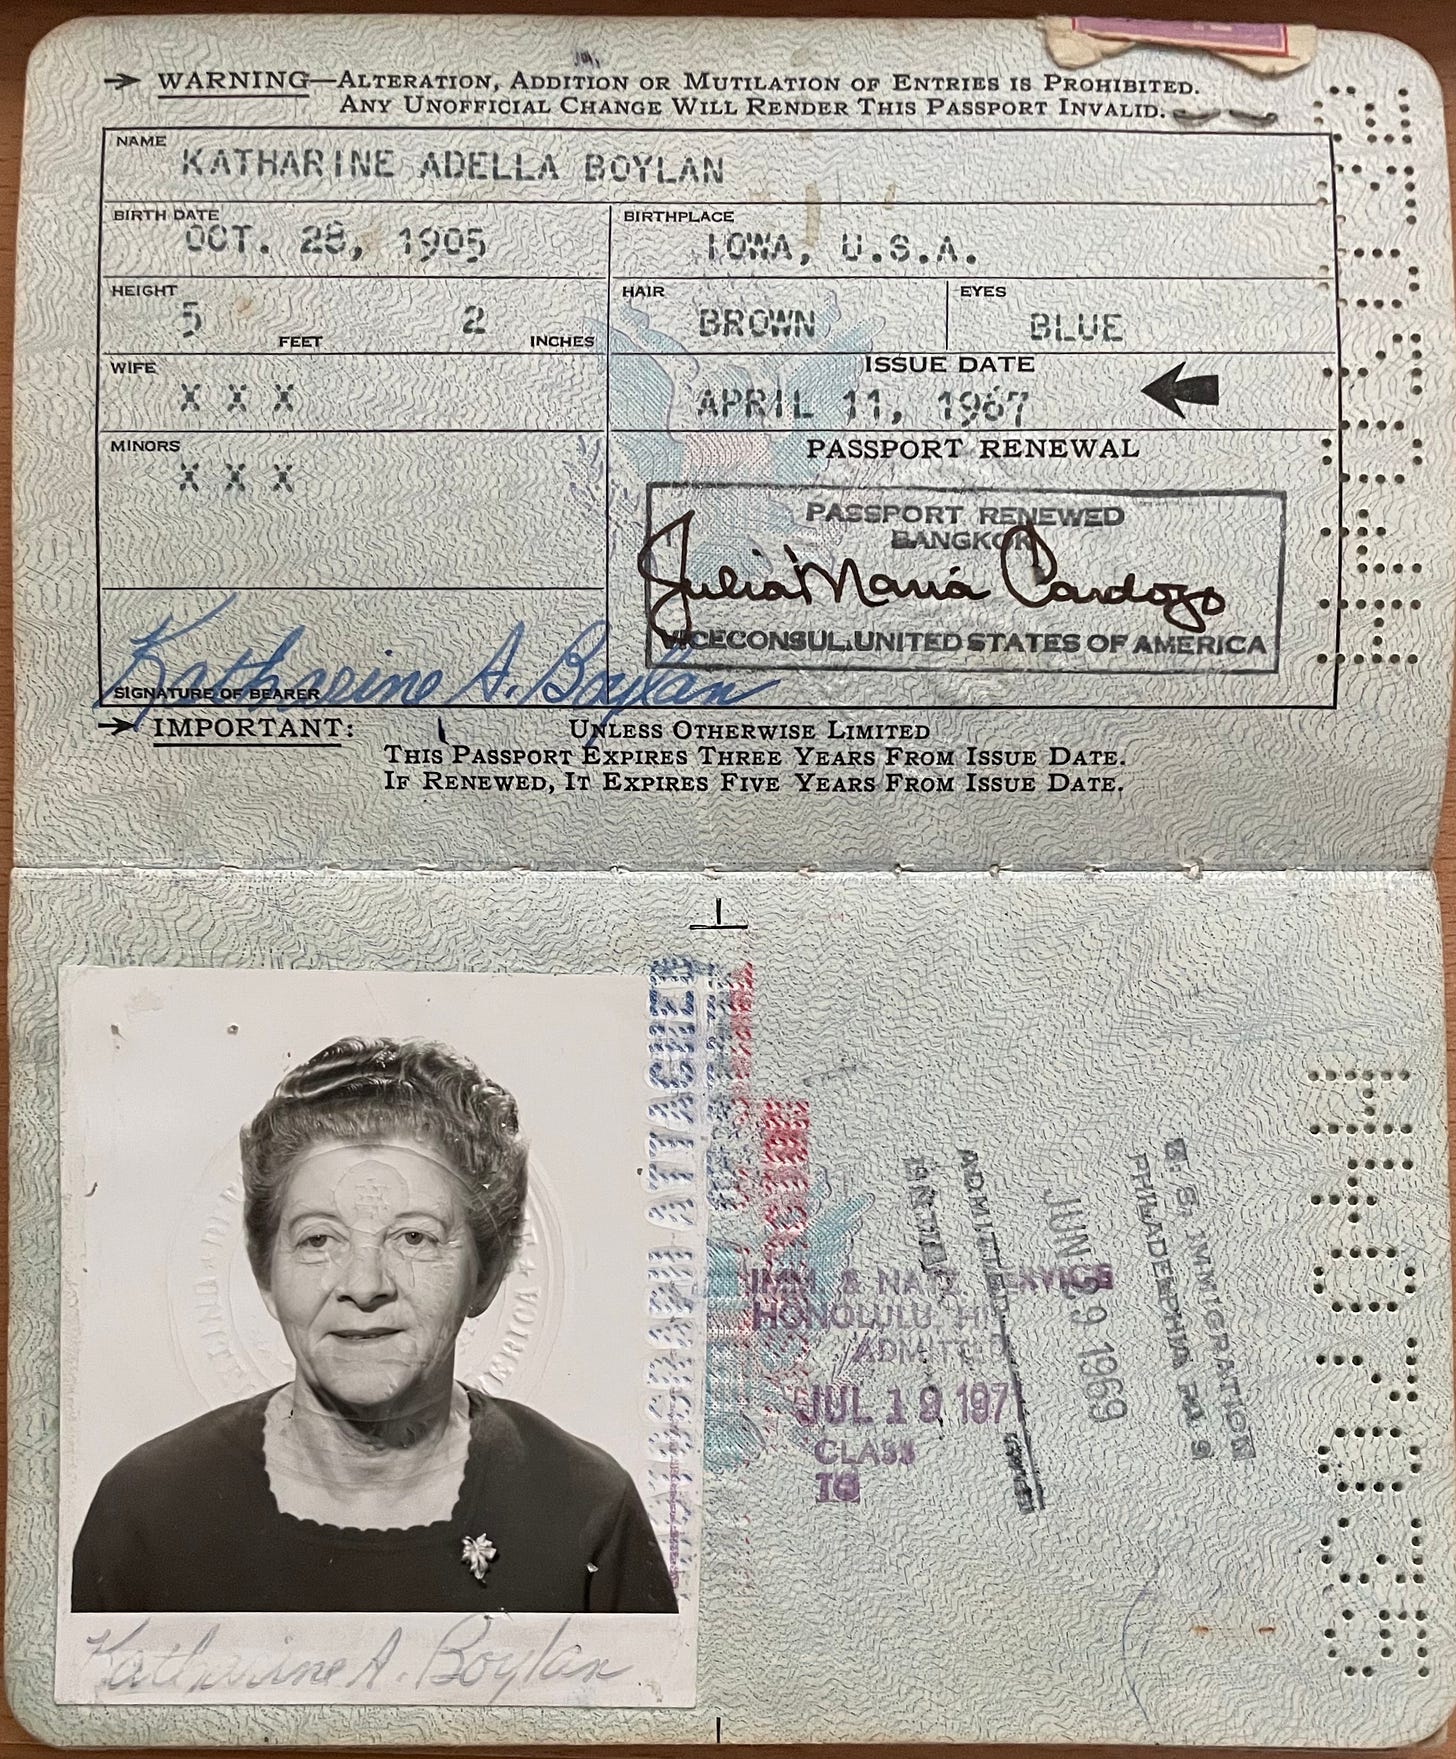 WARNING—ALTERATION, ADDITION OR MUTILATION OF ENTRIES IS PROHIBITED.
ANY UNOFFICIAL CHANGE WILL RENDER THIS PASSPORT INVALID.
NAME
KATHARINE ADELLA BOYLAN
BIRTH DATE
OCT. 28, 1905
BIRTHPLACE
IOWA, U.S.A.
HEIGHT
5 FEET 2 INCHES
HAIR
BROWN
EYES
BLUE
WIFE
X X X
ISSUE DATE
APRIL 11, 1967
MINORS
X X X
PASSPORT RENEWAL
PASSPORT RENEWED
BANGKOK
Julia Maria Cardozo
VICECONSUL.UNITED STATES OF AMERICA
Katharine A. Boylan
SIGNATURE OF BEARER
IMPORTANT:
UNLESS OTHERWISE LIMITED
THIS PASSPORT EXPIRES THREE YEARS FROM ISSUE DATE.
IF RENEWED, IT EXPIRES FIVE YEARS FROM ISSUE DATE.
ATTACHED
IMM. & NATZ. SERVICE
HONOLULU, HI
ADMITTED
JUL 19 1971
CLASS
U. S. IMMIGRATION
PHILADELPHIA PA
JUN 29 1969
ADMITTED
Katharine A. Boylan